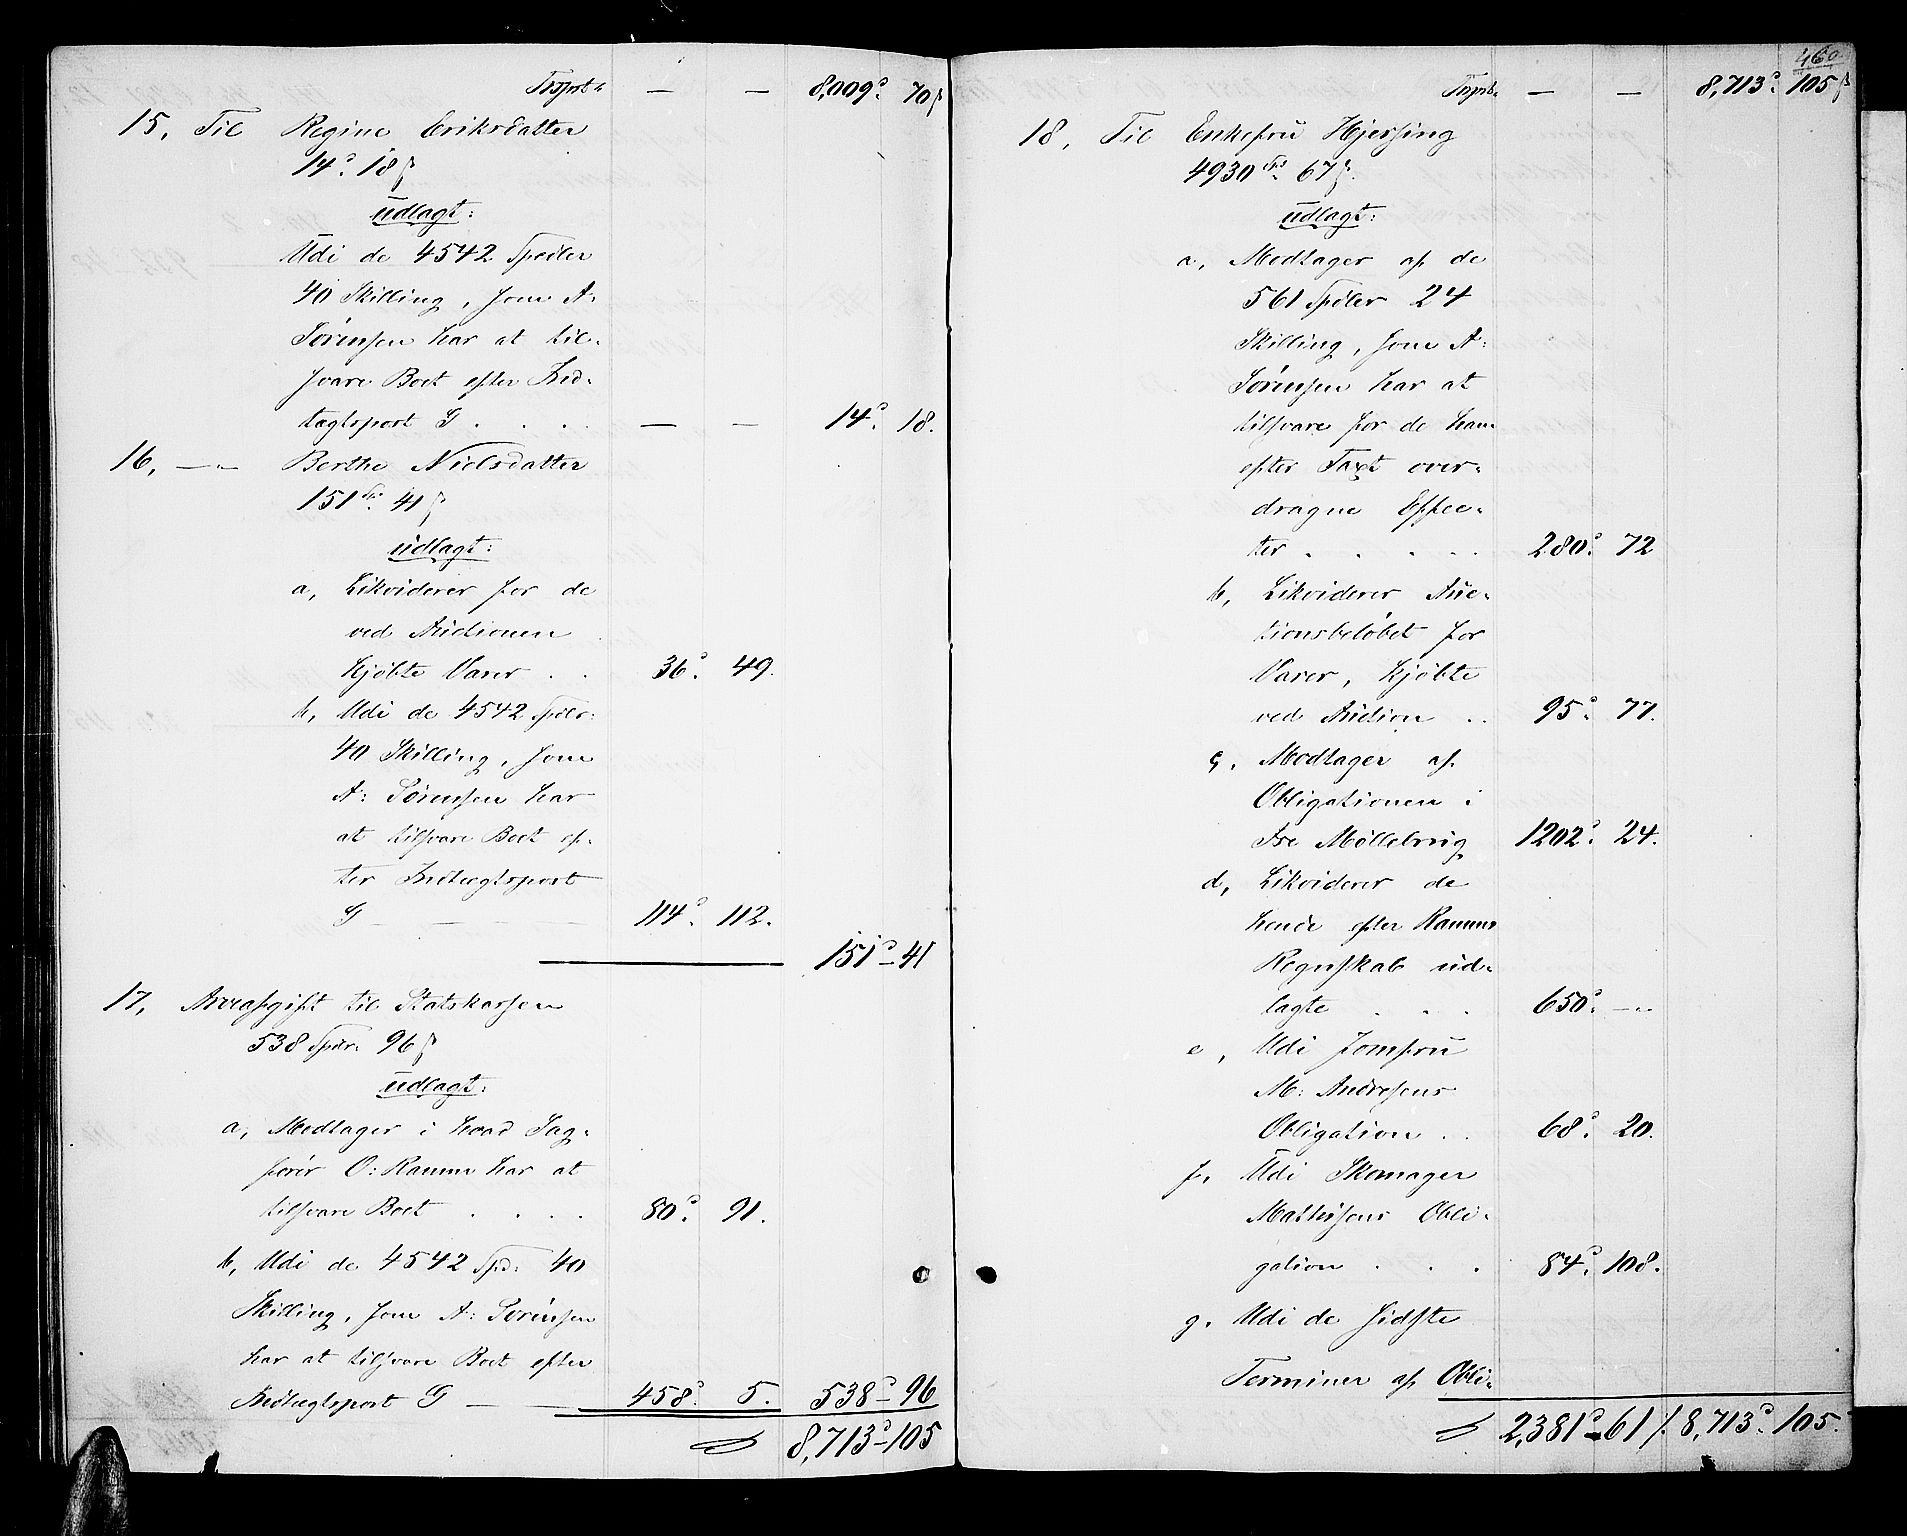 Trsport — — 8,009. 70 ß
15, Til Regine Eriksdatter
14. 18 ß
udlagt:
Udi de 4542 Spdler
40 Skilling, som A:
Sørensen har at til-
svare Boet efter Ind-
tægtspost G . . . . — — 14. 18.
16, —„— Berthe Nielsdatter
151 Sp. 41 ß
udlagt:
a, Likviderer for de
ved Auctionen
kjøbte Varer . . 36. 49.
b, Udi de 4542 Spdlr:
40 Skilling, som
A: Sørensen har
at tilsvare Boet ef-
ter Indtægtspost
G — — — 114. 112.
151 - 41
17, Arveafgift til Statskassen
538 Spdlr. 96 ß
udlagt:
a, Modtager i hvad Sag-
fører O: Ramm har at
tilsvare Boet . . . . 80. 91.
b, Udi de 4542 Spd: 40
Skilling, som A: Sørensen
har at tilsvare Boet efter
Indtægtspost G — — 458. 5. 538 - 96
8,713 - 105
460.
Trsport — — 8,713. 105 ß
18, Til Enkefru Hjersing
4930 Sp. 67 ß.
udlagt:
a, Modtager af de
561 Spdler 24
Skilling, som A:
Sørensen har at
tilsvare for de ham
efter Taxt over-
dragne Effec-
ter . . . . . 280. 72
b, Likviderer Auc-
tionsbeløbet for
Varer, kjøbte
ved Auction . . 95. 77.
c, Modtager af
Obligationen i
Møllebrug 1202. 24.
d, Likviderer de
hende efter Ramms
Regnskab ud-
lagte . . . 650. —„
e, Udi Jomfru
M: Andresens
Obligation . . 68. 20.
f, Udi Skomager
Mathisens Obli-
gation . . . 84. 108.
g, Udi de sidste
Terminer af Obli-
2,381 - 61 /. 8,713. 105.